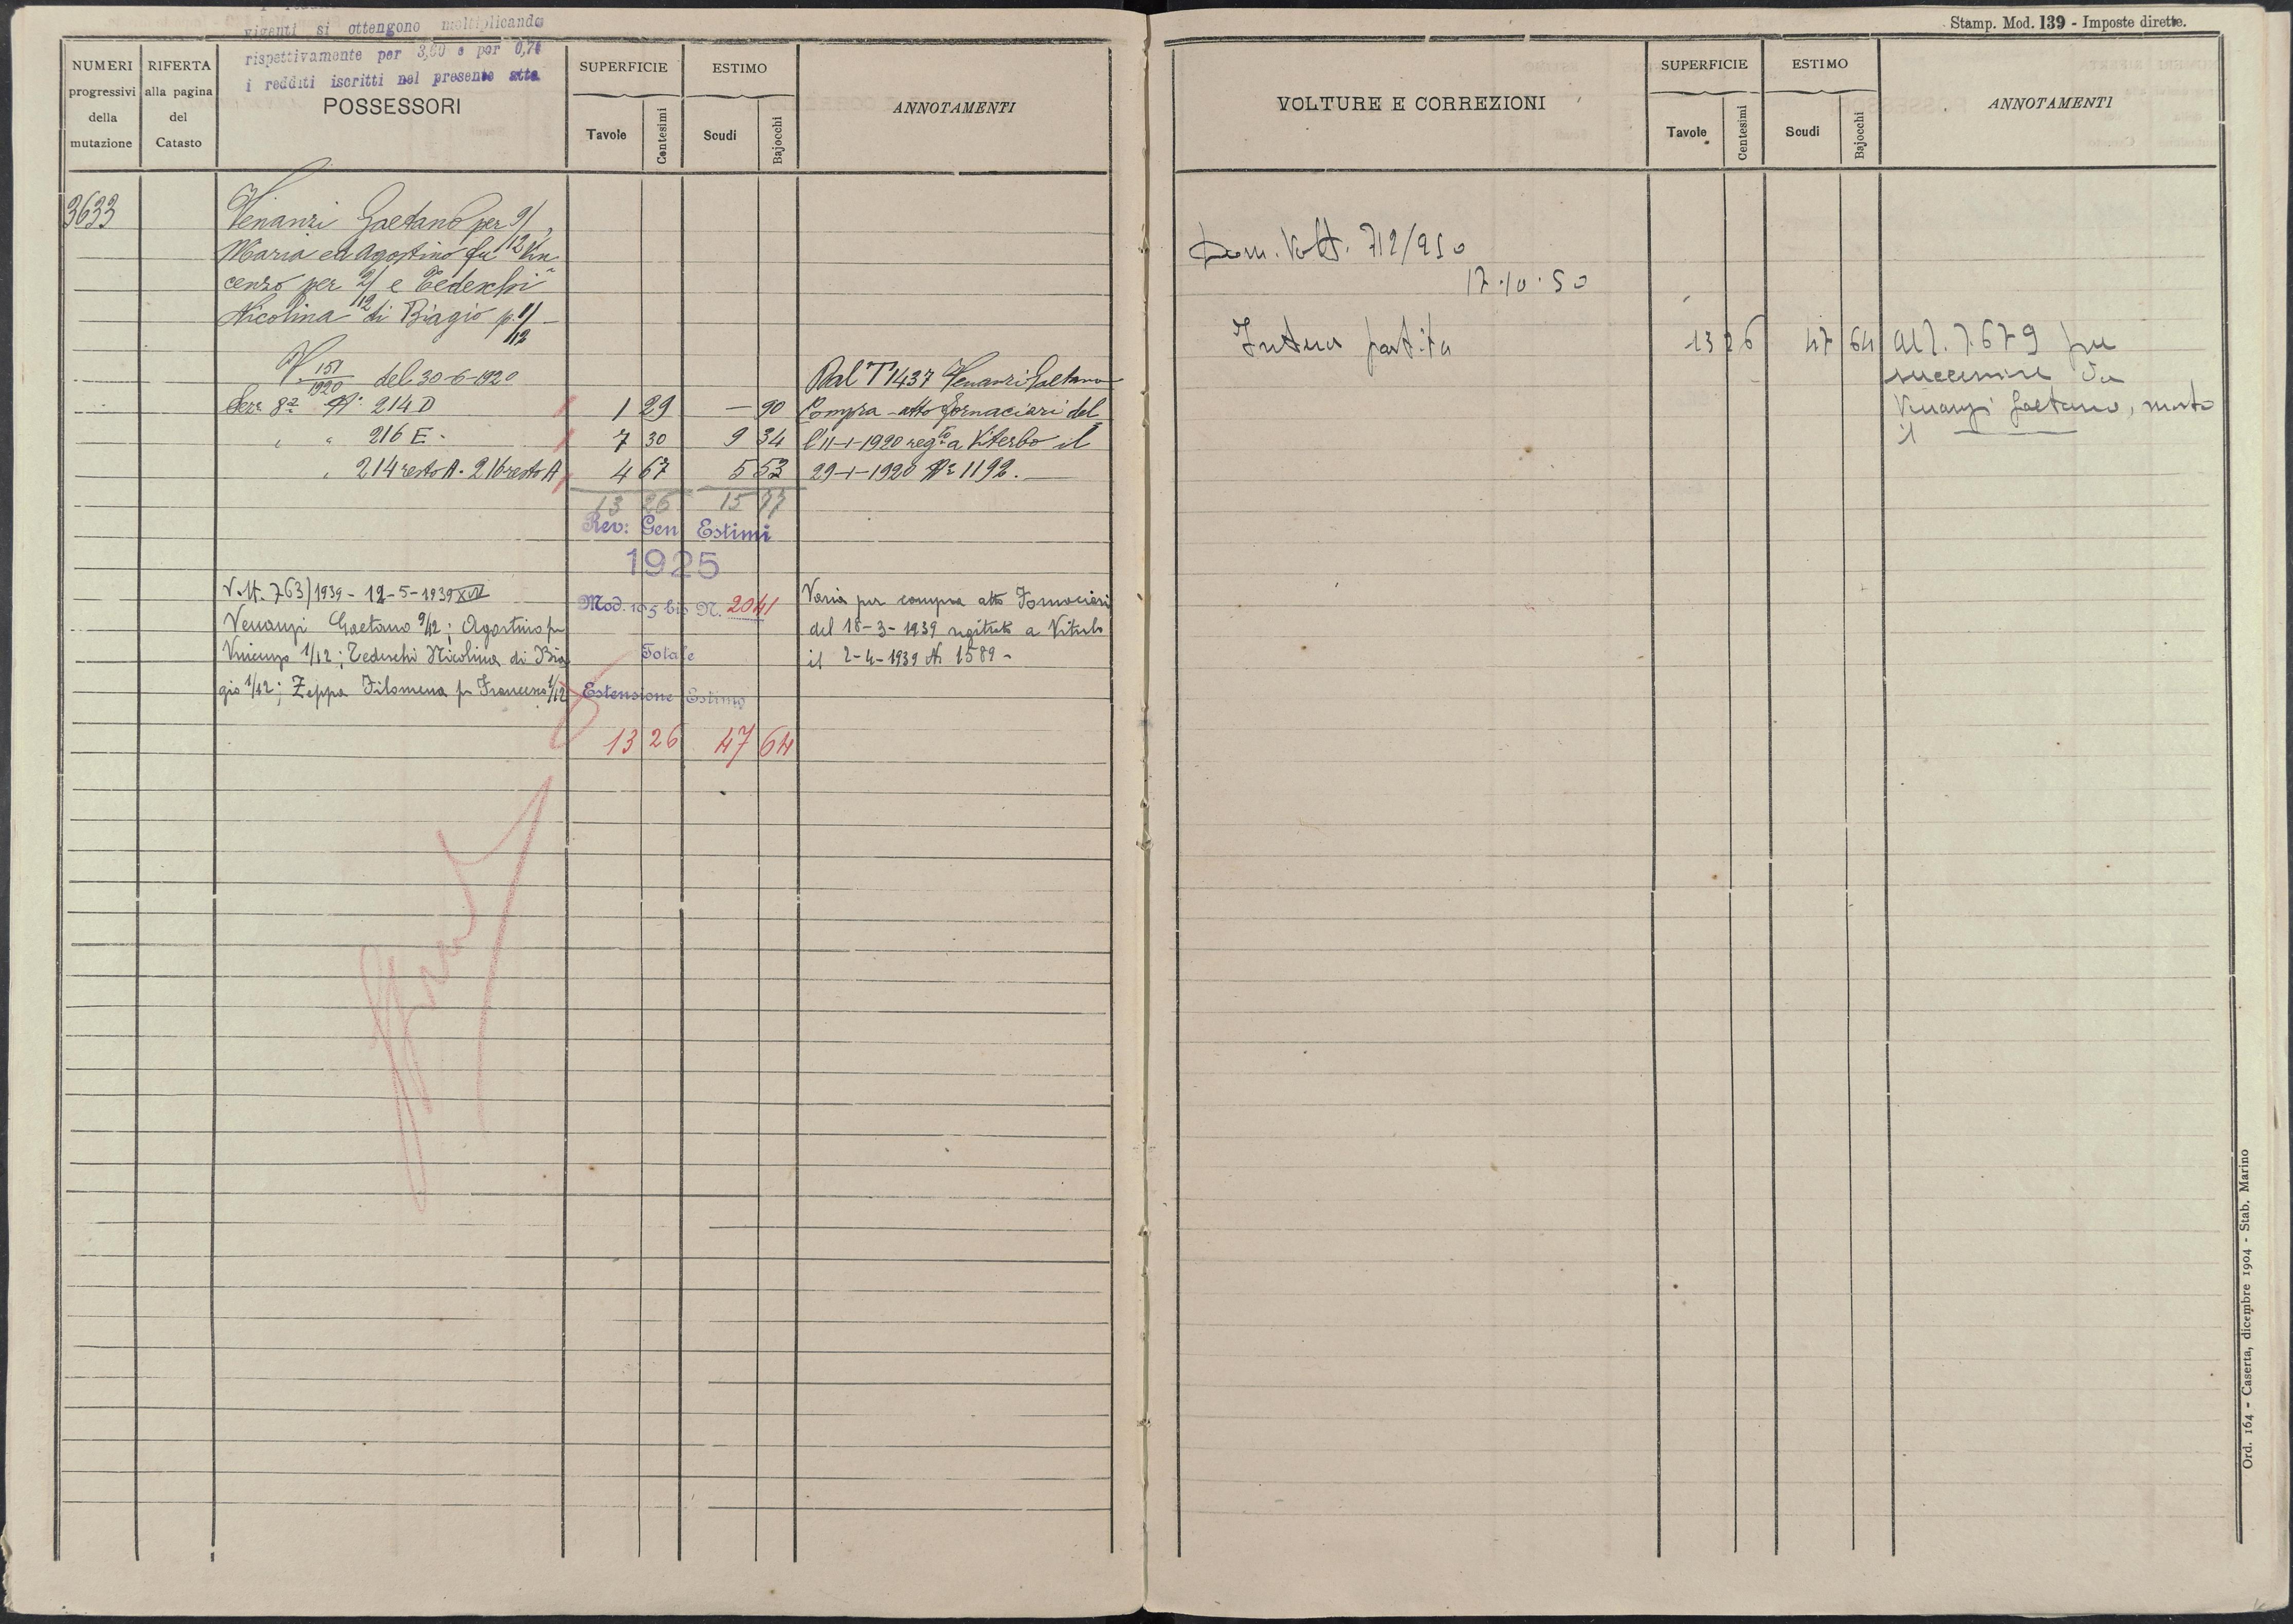 vigenti si ottengono moltiplicando
rispettivamente per 3,60 e per 0,74
i redditi iscritti nel presente atto
NUMERI
progressivi
della
mutazione
RIFERTA
alla pagina
del
Catasto
POSSESSORI
SUPERFICIE
Tavole
Centesimi
ESTIMO
Scudi
Bajocchi
ANNOTAMENTI
3633
Venanzi Gaetano per 9/12,
Maria ed Agostino fu Vin
cenzo per 2/12 e Tedeschi
Nicolina di Biagio p. 1/12
V 151/1920 del 30-6-1920
Sez. 8ª Nº 214 D 1 29 — 90
" " 216 E. 7 30 9 34
" 214 resto A. 216 resto A 4 67 5 53
13 26 15 77
Dal T 1437 Venanzi Gaetano
Compra atto Fornaciari del
l'11-1-1920 regto a Viterbo il
29-1-1920 Nº 1192.
Rev: Gen Estimi
1925
Mod. 105 bis N. 2041
Totale
Estensione Estimo
13 26 47 64
Volt. 763/1939 - 12-5-1939 XVII
Venanzi Gaetano 9/12; Agostino fu
Vincenzo 1/12; Tedeschi Nicolina di Bia
gio 1/12; Zeppa Filomena fu Francesco 1/12
Varia per compra atto Fornaciari
del 18-3-1939 registrato a Viterbo
il 2-4-1939 N. 1589 -
Stamp. Mod. 139 - Imposte dirette.
VOLTURE E CORREZIONI
SUPERFICIE
Tavole
Centesimi
ESTIMO
Scudi
Bajocchi
ANNOTAMENTI
Dom. Volt. 712/950
17.10.50
Intera partita 13 26 47 64
All. 7679 per
successione di
Venanzi Gaetano, morto
il
Ord. 164 - Caserta, dicembre 1904 - Stab. Marino